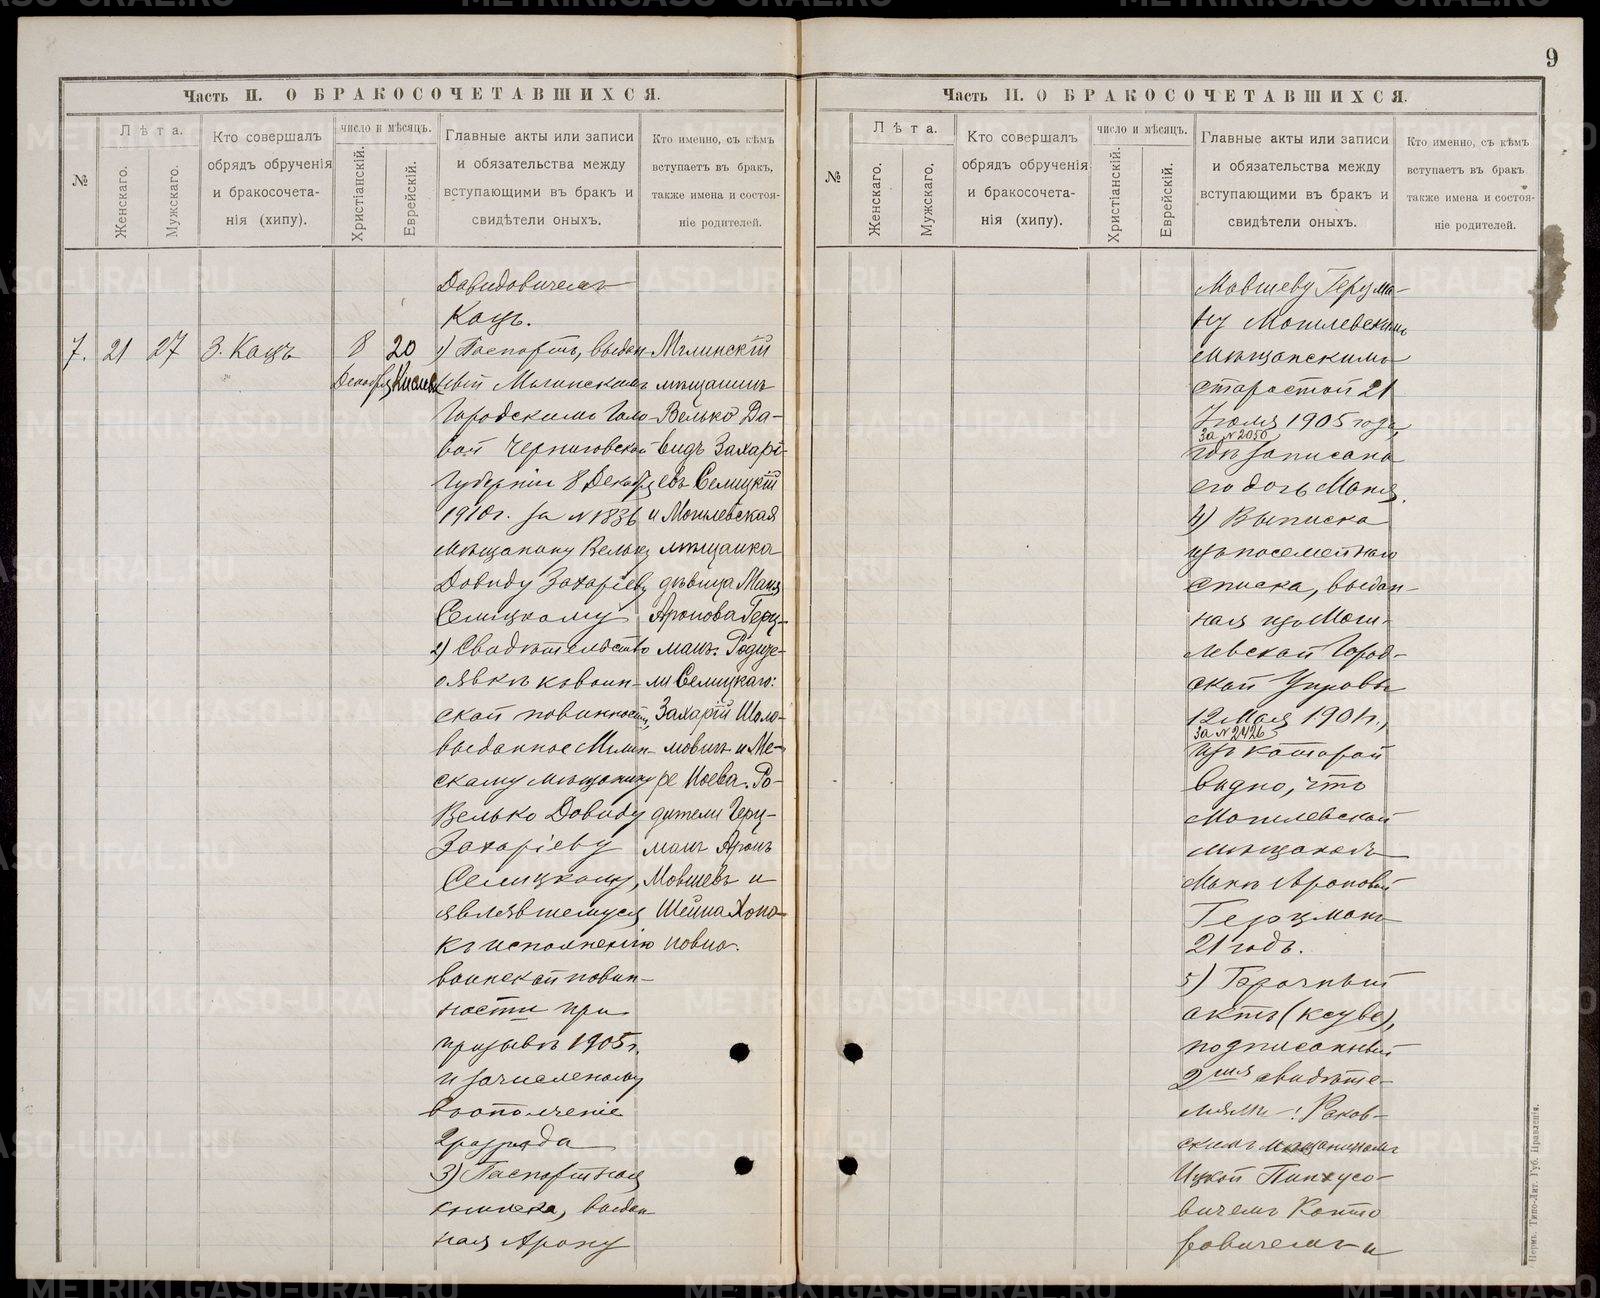 9
Часть II. О БРАКОСОЧЕТАВШИХСЯ.
№
Лѣта.
Женскаго.
Мужскаго.
Кто совершалъ
обрядъ обрученія
и бракосочета-
нія (хипу).
число и мѣсяцъ.
Христіанскій.
Еврейскій.
Главные акты или записи
и обязательства между
вступающими въ бракъ и
свидѣтели оныхъ.
Кто именно, съ кѣмъ
вступаетъ въ бракъ,
также имена и состоя-
ніе родителей.
Давидовичемъ
Кацъ.
7. 21 27 З. Кацъ
8
Декабря
20
Кислева
1) Паспортъ, выдан-
ный Мглинскимъ
Городскимъ Голо-
вой Черниговской
Губерніи 8 Декабря
1910 г. за № 1836
мѣщанину Велько
Давиду Захаріеву
Селицкому
2) Свидѣтельство
о явкѣ къ воин-
ской повинности,
выданное Мглин-
скому мѣщанину
Велько Давиду
Захаріеву
Селицкому,
являвшемуся
къ исполненію
воинской повин-
ности при
призывѣ 1905 г.
и зачисленому
въ ополченіе
2 разряда
3) Паспортная
книжка, выдан-
ная Арону
Мглинскій
мѣщанинъ
Велько Да-
видъ Захарі-
евъ Селицкій
и Могилевская
мѣщанка
дѣвица Маня
Аронова Герц-
манъ. Родите-
ли Селицкаго:
Захарій Шоло-
мовичъ и Ме-
ре Ноева. Ро-
дители Герц-
манъ Аронъ
Мовшевъ и
Шейна Хоно-
новна.
Часть II. О БРАКОСОЧЕТАВШИХСЯ.
№
Лѣта.
Женскаго.
Мужскаго.
Кто совершалъ
обрядъ обрученія
и бракосочета-
нія (хипу).
число и мѣсяцъ.
Христіанскій.
Еврейскій.
Главные акты или записи
и обязательства между
вступающими въ бракъ и
свидѣтели оныхъ.
Кто именно, съ кѣмъ
вступаетъ въ бракъ
также имена и состоя-
ніе родителей.
Мовшеву Герцма-
ну Могилевскимъ
мѣщанскимъ
старостой 21
Іюля 1905 года,
за № 2050
гдѣ записана
его дочь Маня.
4) Выписка
изъ посемейнаго
списка, выдан-
ная изъ Моги-
левской Город-
ской Управы
12 Мая 1901 г.,
за № 2426
изъ которой
видно, что
Могилевской
мѣщанкѣ
Манѣ Ароновой
Герцманъ
21 годъ.
5) Брачный
актъ (ксубе),
подписанный
2мя свидѣте-
лями: Раков-
скимъ мѣщаниномъ
Ицкой Пинхусо-
вичемъ Канто
ровичемъ и
Пермь. Типо-Лит. Губ. Правленія.
METRIKI.GASO-URAL.RU